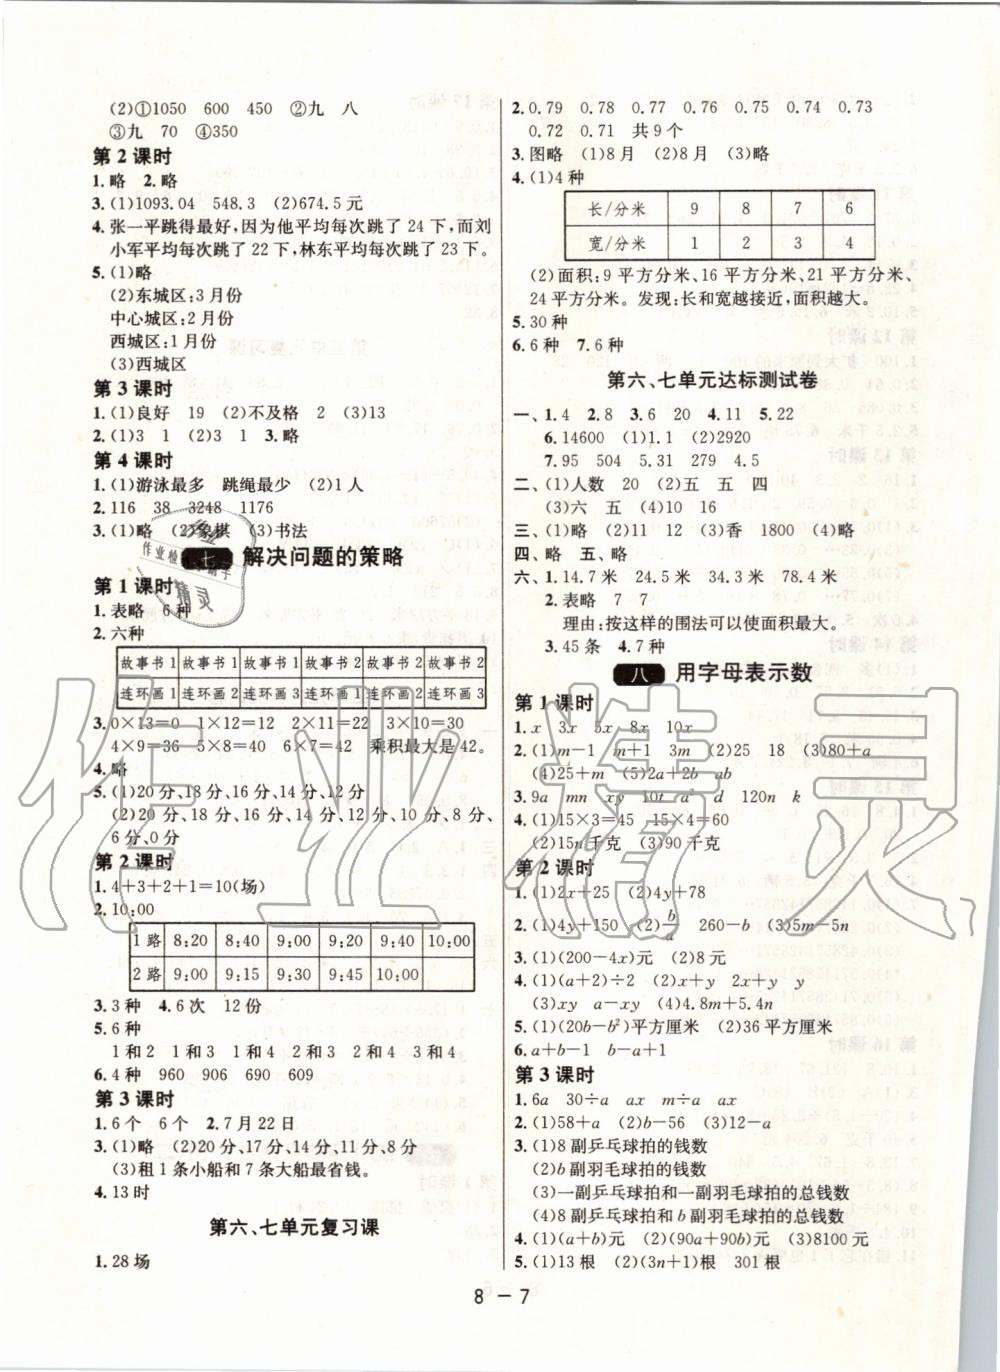 (2)①1050 600 450 ②九 八
③九 70 ④350
第 2 课时
1.略 2.略
3.(1)1093.04 548.3 (2)674.5元
4.张一平跳得最好,因为他平均每次跳了 24 下,而刘
小军平均每次跳了 22 下,林东平均每次跳了 23 下。
5.(1)略
(2)东城区:3月份
中心城区:2月份
西城区:1月份
(3)西城区
第 3 课时
1.(1)良好 19 (2)不及格 2 (3)13
2.(1)3 1 (2)3 1 3.略
第 4 课时
1.(1)游泳最多 跳绳最少 (2)1人
2.116 38 3248 1176
3.(1)略 (2)象棋 (3)书法
七 解决问题的策略
第 1 课时
1.表略 6种
2.六种
故事书1 故事书1 故事书1 故事书2 故事书2 故事书2
连环画1 连环画2 连环画3 连环画1 连环画2 连环画3
3.0×13=0 1×12=12 2×11=22 3×10=30
4×9=36 5×8=40 6×7=42 乘积最大是42。
4.略
5.(1)20分、18分、16分、14分、12分
(2)20分、18分、16分、14分、12分、10分、8分、
6分、0分
第 2 课时
1.4+3+2+1=10(场)
2.10:00
1路 8:20 8:40 9:00 9:20 9:40 10:00
2路 9:00 9:15 9:30 9:45 10:00
3.3种 4.6次 12份
5.6种
1和2 1和3 1和4 2和3 2和4 3和4
6.4种 960 906 690 609
第 3 课时
1.6个 6个 2.7月22日
3.(1)略 (2)20分、17分、14分、11分、8分
(3)租1条小船和7条大船最省钱。
4.13时
第六、七单元复习课
1.28场
2.0.79 0.78 0.77 0.76 0.75 0.74 0.73
0.72 0.71 共9个
3.图略 (1)8月 (2)8月 (3)略
4.(1)4种
长/分米 9 8 7 6
宽/分米 1 2 3 4
(2)面积:9平方分米、16平方分米、21平方分米、
24平方分米。发现:长和宽越接近,面积越大。
5.30种
6.6种 7.6种
第六、七单元达标测试卷
一、1.4 2.8 3.6 20 4.11 5.22
6.14600 (1)1.1 (2)2920
7.95 504 5.31 279 4.5
二、(1)人数 20 (2)五 五 四
(3)六 五 (4)10 16
三、(1)略 (2)11 12 (3)香 1800 (4)略
四、略 五、略
六、1.14.7米 24.5米 34.3米 78.4米
2.表略 7 7
理由:按这样的围法可以使面积最大。
3.45条 4.7种
八 用字母表示数
第 1 课时
1.x 3x 5x 8x 10x
2.(1)m-1 m+1 3m (2)25 18 (3)80+a
(4)25+m (5)2a+2b ab
3.9a mn xy 10t a² d 120n k
4.(1)15×3=45 15×4=60
(2)15n千克 (3)90千克
第 2 课时
1.(1)2x+25 (2)4y+78
2.(1)4y+150 (2)b/a 260-b (3)5m-5n
3.(1)(200-4x)元 (2)8元
4.(1)(a+2)÷2 (2)x+y 2x+y
(3)xy a-xy (4)4.8m+5.4n
5.(1)(20b-b²)平方厘米 (2)36平方厘米
6.a+b-1 b-a+1
第 3 课时
1.6a 30÷a ax m÷a ax
2.(1)58+a (2)b-56 (3)12-a
3.(1)8副乒乓球拍的钱数
(2)b副羽毛球拍的钱数
(3)一副乒乓球拍和一副羽毛球拍的总钱数
(4)8副乒乓球拍和b副羽毛球拍的总钱数
4.(1)(a+b)元 (2)(90a+90b)元 (3)8100元
5.(1)13根 (2)(3n+1)根 301根
8-7
作业精灵
作业
作业检
精灵